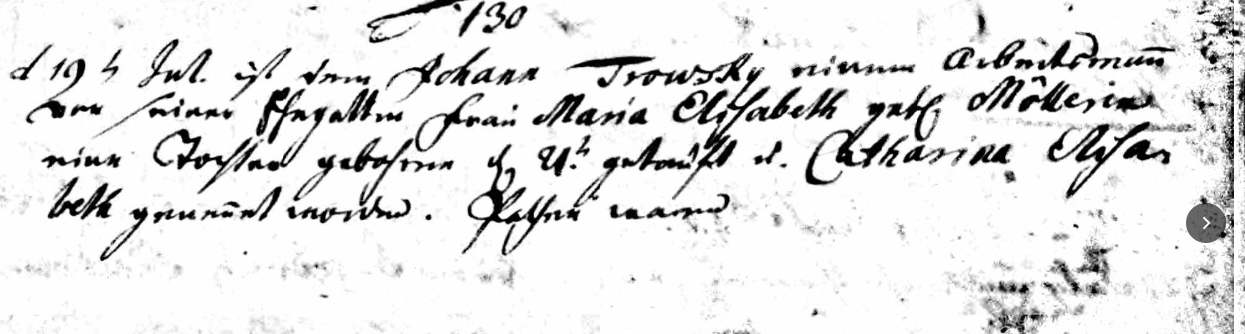 130
d 19 t Jul. ist dem Johann Trowsky einem Arbeitsmann
von seiner Ehegattin Frau Maria Elisabeth geb. Möllerin
eine Tochter gebohren d 21 t getauft u. Catharina Elisa
beth genennet worden. Pathen waren